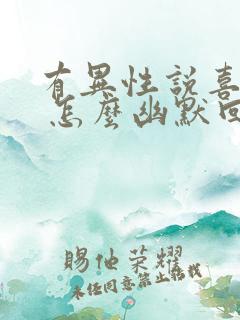 有異性說喜
怎麼幽默回
賜他荣耀
未经同意禁止转载